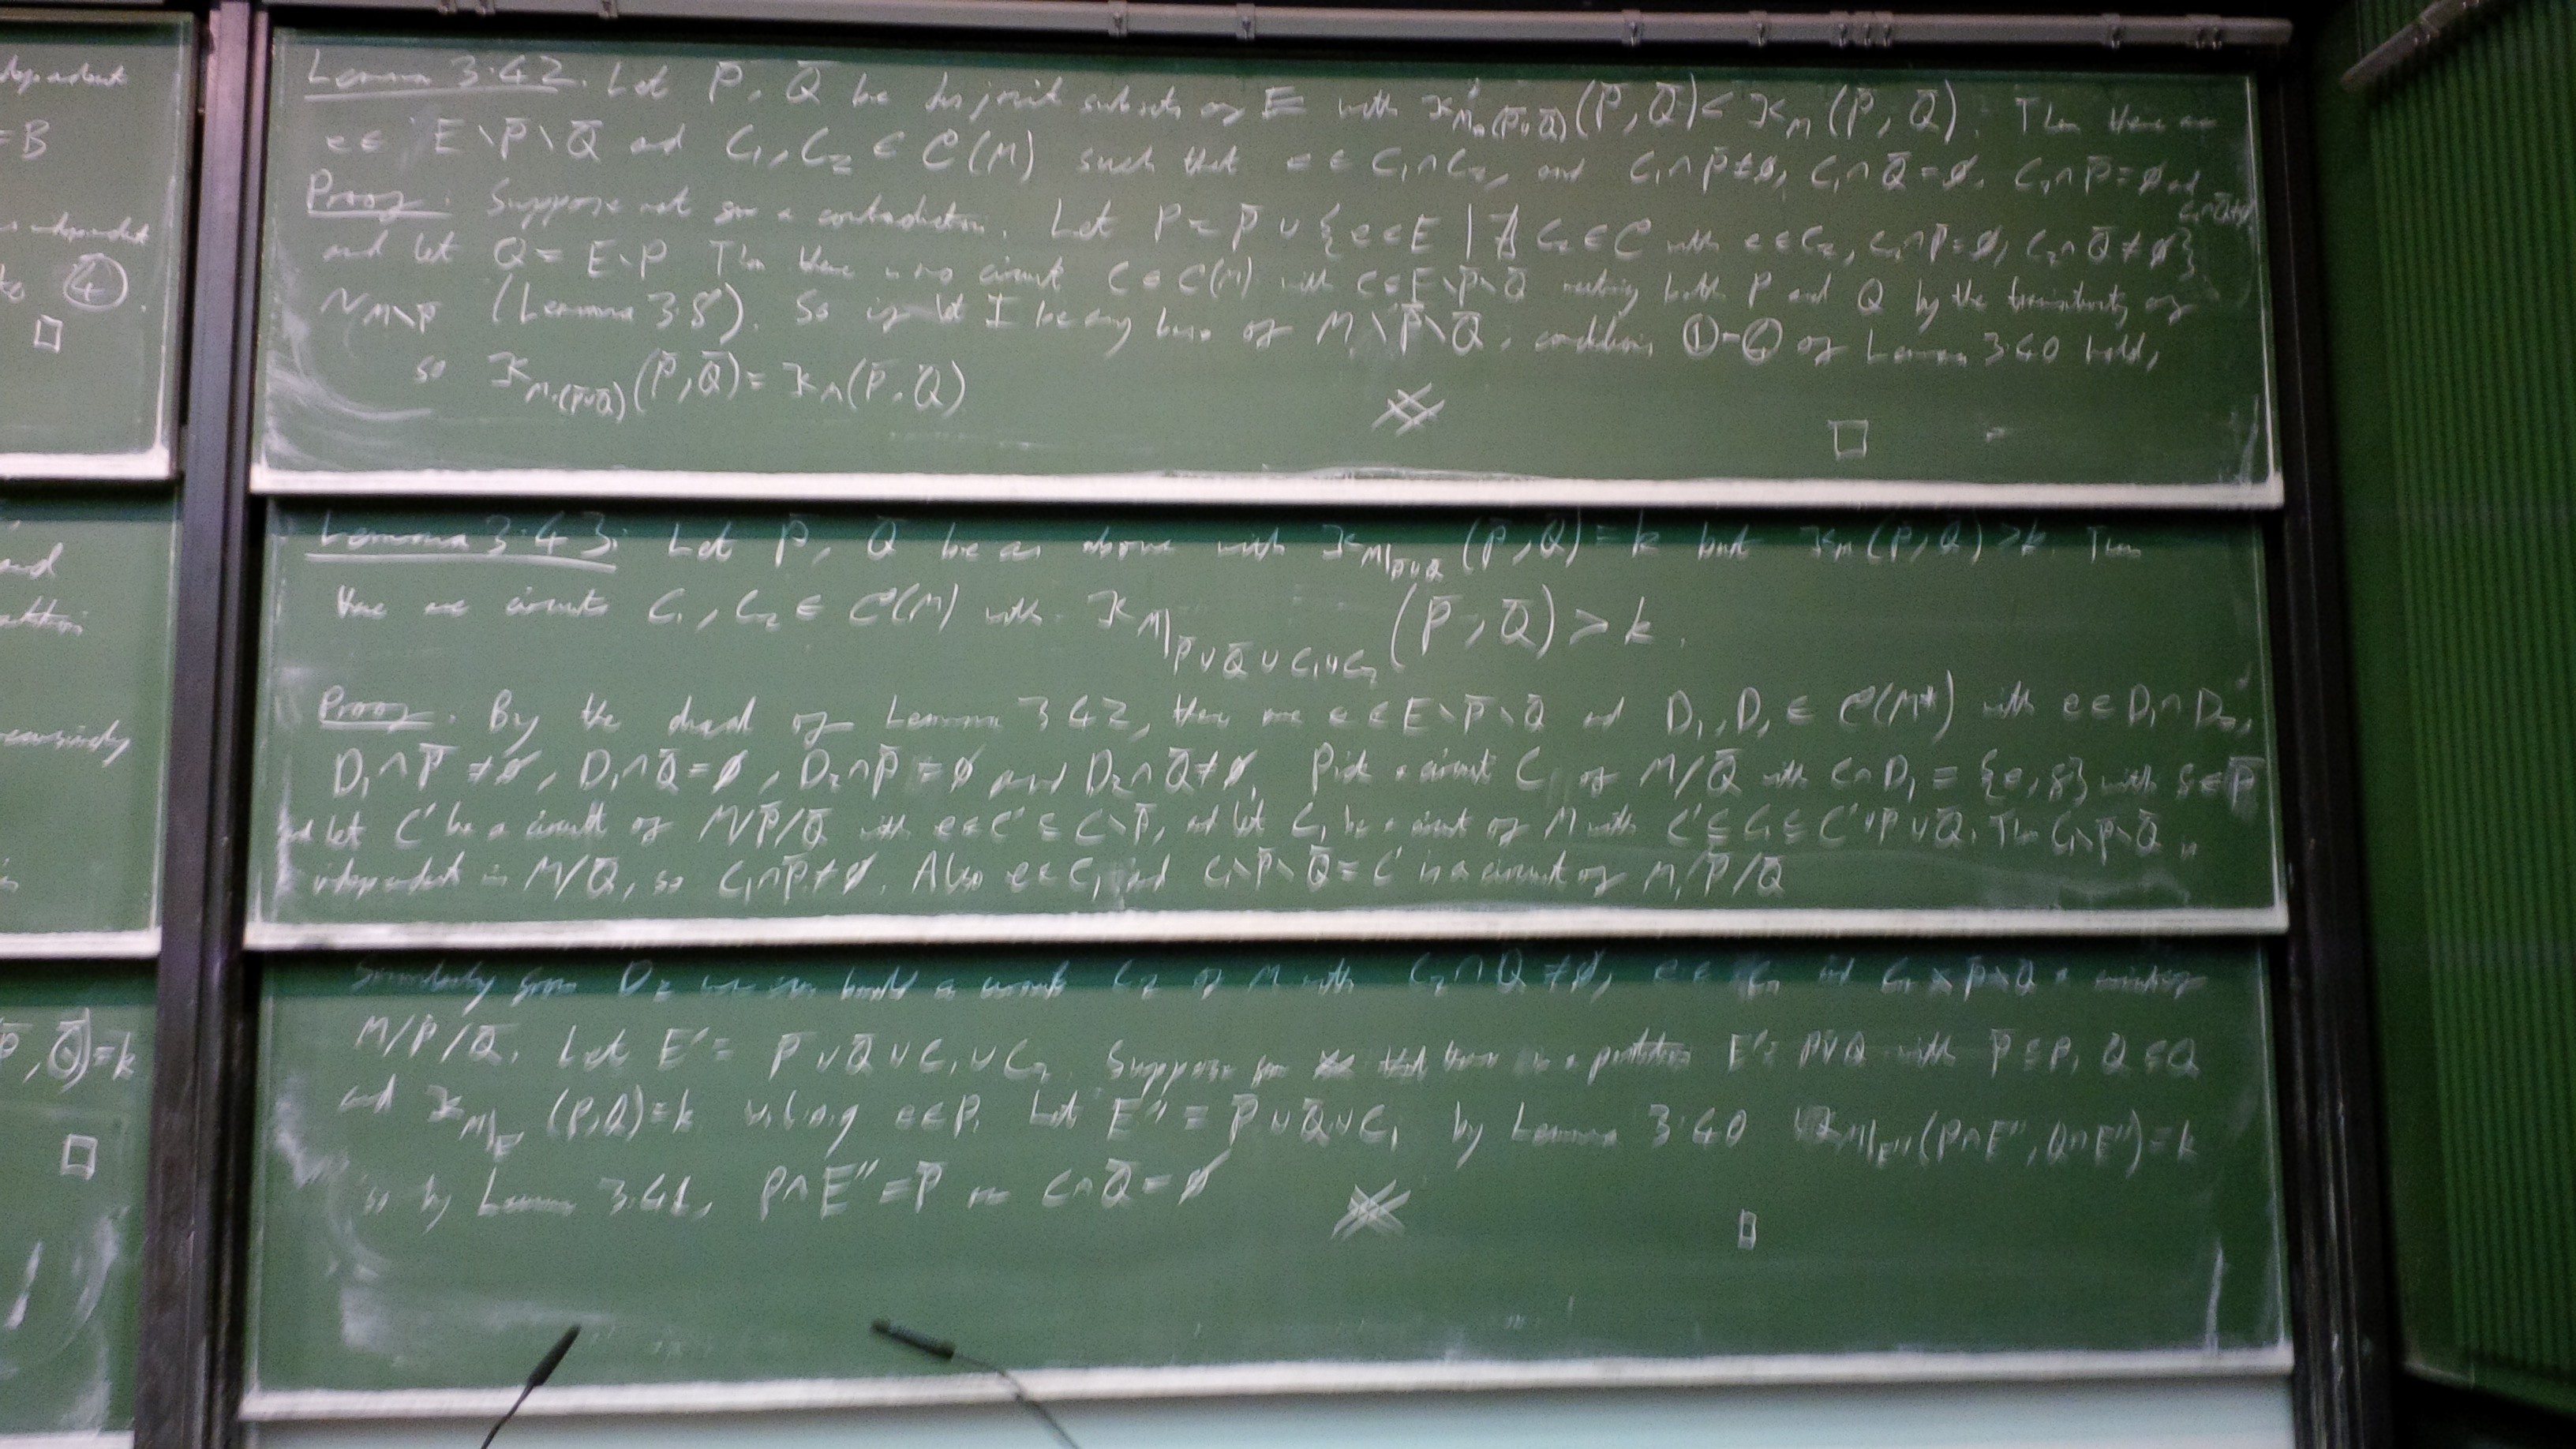 dependent
= B
independent
to ④.
□
and
recursively
P̄, Q̄) = k
□
Lemma 3.42. Let P̄, Q̄ be disjoint subsets of E with κ_{M.(P̄∪Q̄)}(P̄, Q̄) < κ_M(P̄, Q̄). Then there are
e ∈ E∖P̄∖Q̄ and C₁, C₂ ∈ C(M) such that e ∈ C₁∩C₂, and C₁∩P̄≠∅, C₁∩Q̄=∅, C₂∩P̄=∅ and C₂∩Q̄≠∅
Proof: Suppose not for a contradiction. Let P = P̄ ∪ {e∈E | ∄ C₂∈C with e∈C₂, C₂∩P̄=∅, C₂∩Q̄≠∅}
and let Q = E∖P. Then there is no circuit C ∈ C(M) with C⊆E∖P̄∖Q̄ meeting both P and Q by the transitivity of
~M∖P̄ (Lemma 3.8). So if we let I be any base of M∖P̄∖Q̄, conditions ①-④ of Lemma 3.40 hold,
so κ_{M.(P̄∪Q̄)}(P̄, Q̄) = κ_M(P̄, Q̄) ※ □
Lemma 3.43: Let P̄, Q̄ be as above with κ_{M|P̄∪Q̄}(P̄, Q̄) = k but κ_M(P̄, Q̄) > k. Then
there are circuits C₁, C₂ ∈ C(M) with κ_{M|P̄∪Q̄∪C₁∪C₂}(P̄, Q̄) > k.
Proof. By the dual of Lemma 3.42, there are e ∈ E∖P̄∖Q̄ and D₁, D₂ ∈ C(M*) with e∈D₁∩D₂,
D₁∩P̄≠∅, D₁∩Q̄=∅, D₂∩P̄=∅ and D₂∩Q̄≠∅. Pick a circuit C of M/Q̄ with C∩D₁ = {e, f} with f∈P̄
and let C' be a circuit of M/P̄/Q̄ with e∈C'⊆C∖P̄, and let C₁ be a circuit of M with C'⊆C₁⊆C'∪P̄∪Q̄. Then C₁∖P̄∖Q̄ is
independent in M/Q̄, so C₁∩P̄≠∅. Also e∈C₁ and C₁∖P̄∖Q̄ = C' is a circuit of M/P̄/Q̄
Similarly from D₂ we can build a circuit C₂ of M with C₂∩Q̄≠∅, e∈C₂ and C₂∖P̄∖Q̄ a circuit of
M/P̄/Q̄. Let E' = P̄∪Q̄∪C₁∪C₂. Suppose for ※ that there is a partition E' = P∪Q with P̄⊆P, Q̄⊆Q
and κ_{M|E'}(P,Q)=k wlog e∈P. Let E'' = P̄∪Q̄∪C₁ by Lemma 3.40 κ_{M|E''}(P∩E'', Q∩E'')=k
so by Lemma 3.41, P∩E''=P̄ or C∩Q̄=∅ ※ □